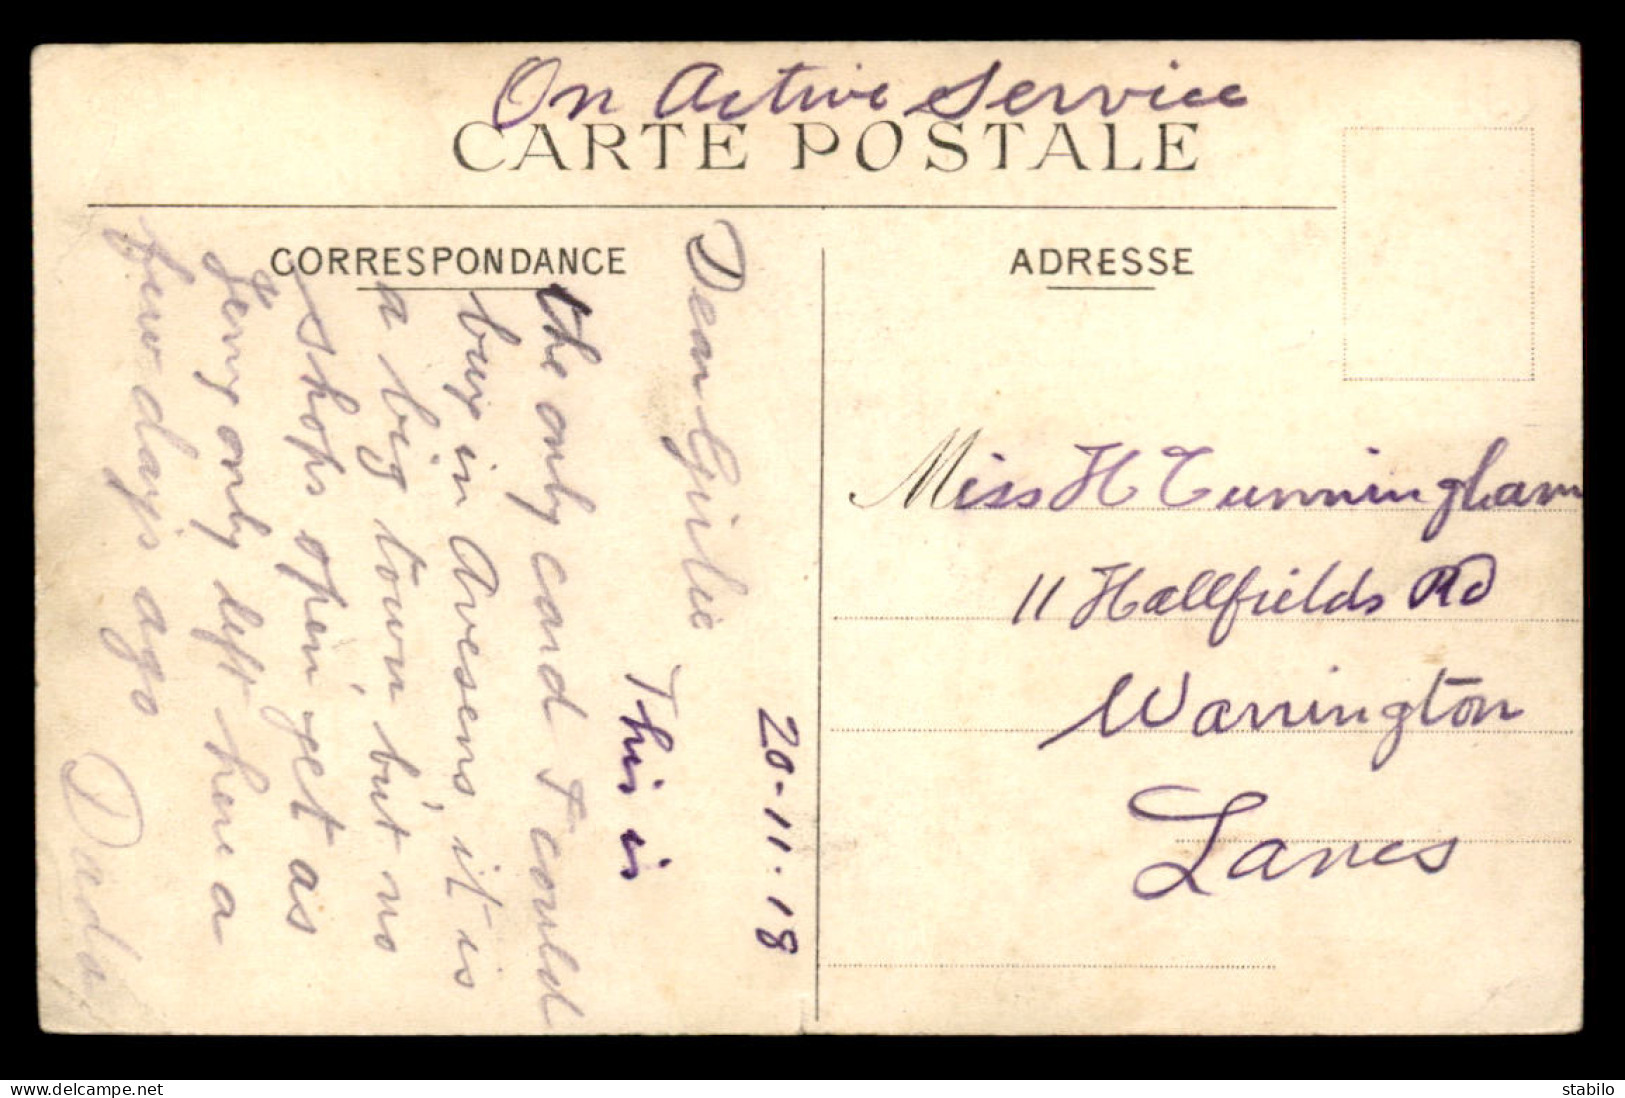 On Active Service
CARTE POSTALE
CORRESPONDANCE
ADRESSE
20-11-18
Dear Girlie
This is
the only card I could
buy in Avesens, it is
a big town but no
shops open yet as
Jerry only left here a
few days ago
Dada
Miss H Cunningham
11 Hallfields Rd
Warrington
Lancs
delcampe.net
stabilo